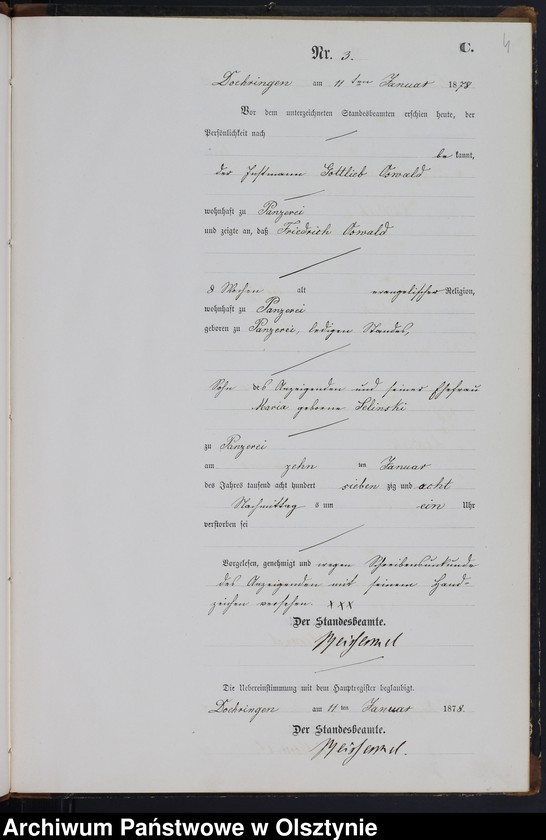 4
C.
Nr. 3.
Doehringen am 11 ten Januar 1878
Vor dem unterzeichneten Standesbeamten erschien heute, der
Persönlichkeit nach
be kannt,
der Instmann Gottlieb Oswald
wohnhaft zu Panzerei
und zeigte an, daß Friedrich Oswald
8 Wochen alt evangelischer Religion,
wohnhaft zu Panzerei
geboren zu Panzerei, ledigen Standes,
Sohn des Anzeigenden und seiner Ehefrau
Maria geborne Selinski
zu Panzerei
am zehn ten Januar
des Jahres tausend acht hundert sieben zig und acht
Nachmittag s um ein Uhr
verstorben sei
Vorgelesen, genehmigt und wegen Schreibensunkunde
des Anzeigenden mit seinem Hand-
zeichen versehen. XXX
Der Standesbeamte.
Die Uebereinstimmung mit dem Hauptregister beglaubigt.
Doehringen am 11 ten Januar 1878.
Der Standesbeamte.
Archiwum Państwowe w Olsztynie